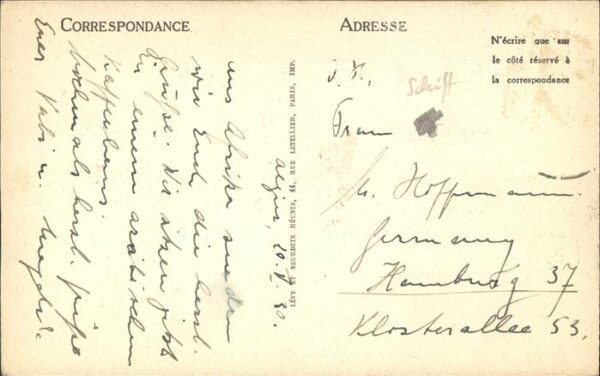 CORRESPONDANCE
ADRESSE
N'écrire que sur
le côté réservé à
la correspondance
Schiff
Frau
M. Hoffmann.
Germany
Hamburg 37
Klosterallee 53.
LÉVY ET NEURDEIN RÉUNIS, 44, RUE LATELLIER, PARIS, IMP.
Algier, 20.V.30.
aus Afrika senden
wir Euch die herzl.
Grüße. Wir sitzen jetzt
in einem arabischen
Kaffeehaus.
Nochmals herzl. Grüße
Euer u.